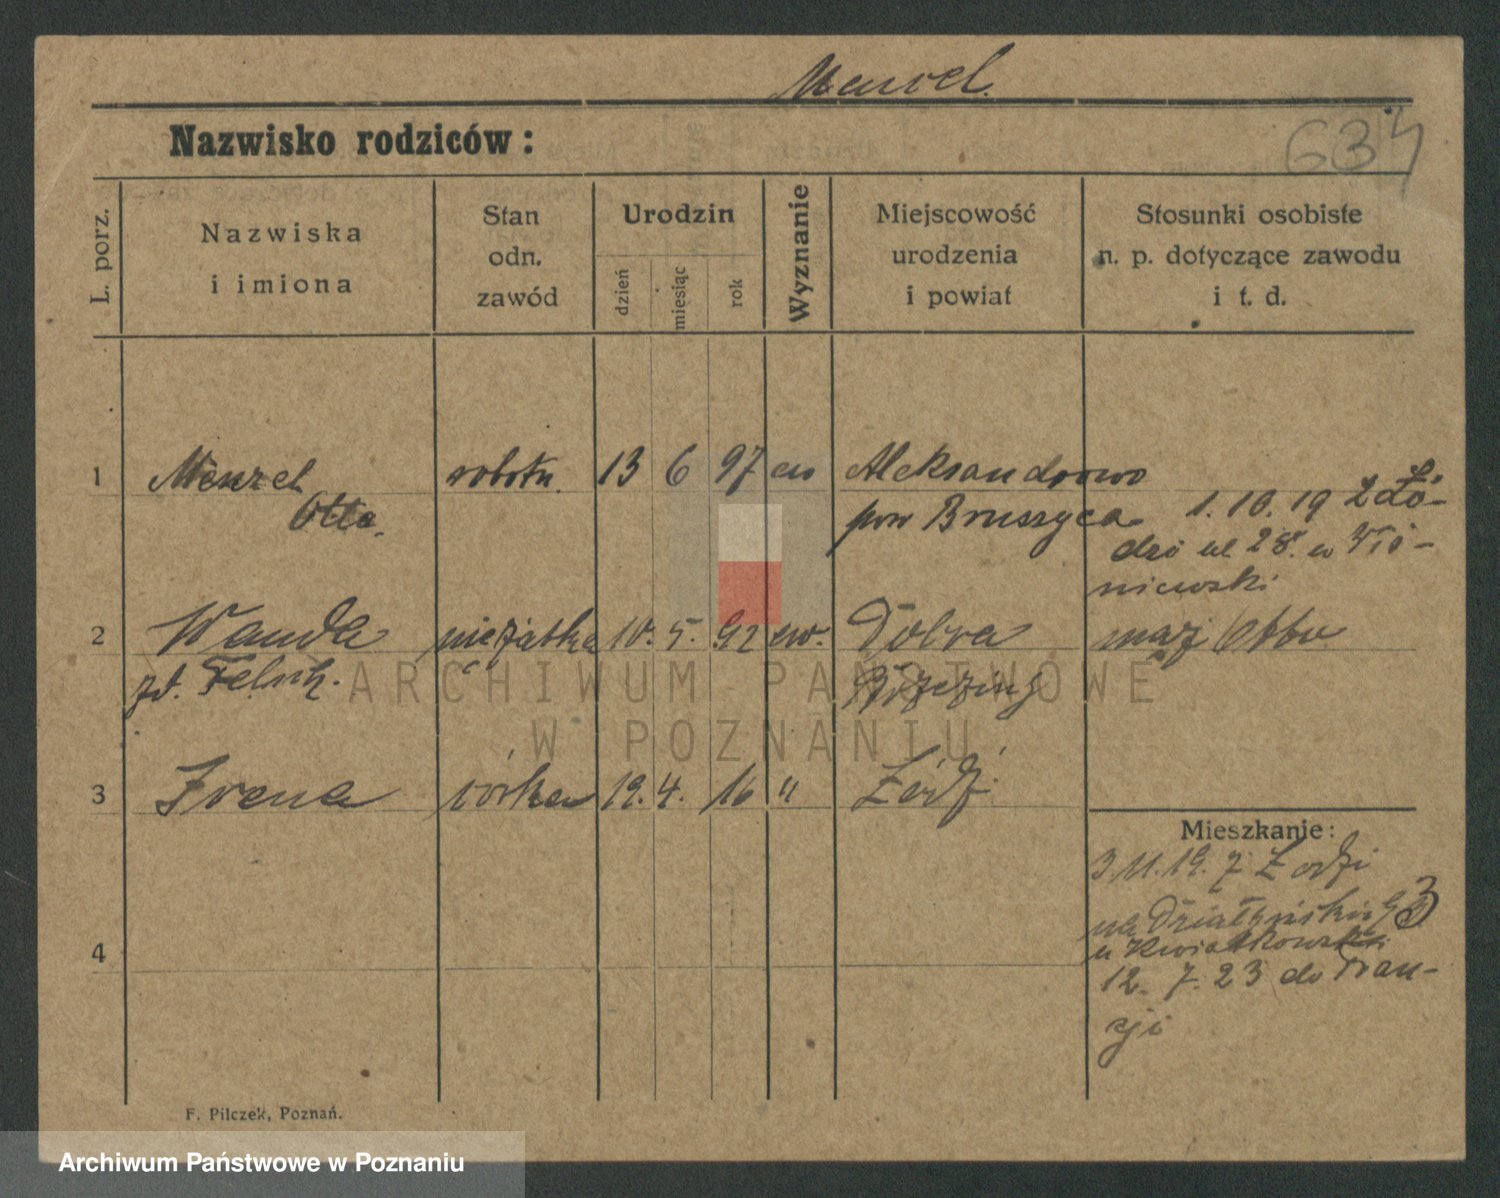 Menzel.
Nazwisko rodziców:
634
L. porz.
Nazwiska
i imiona
Stan
odn.
zawód
Urodzin
dzień
miesiąc
rok
Wyznanie
Miejscowość
urodzenia
i powiat
Stosunki osobiste
n. p. dotyczące zawodu
i t. d.
1 Menzel robotn. 13 6 97 ew Aleksandrowo
Otto pow Brussyca 1.10.19 z Ło-
dzi ul 28. w
niewski
2 Wanda mężatka 10. 5. 92 ew. Dobra mąż Otto
zd. Felsch. Brzeziny
3 Irena córka 19. 4. 16 " Łódź
Mieszkanie:
3.11.19. z Łodzi
na Działyńskich 3
u Kwiatkowski
4
12. 7. 23 do Fran-
cji
F. Pilczek, Poznań.
ARCHIWUM PAŃSTWOWE
W POZNANIU
Archiwum Państwowe w Poznaniu